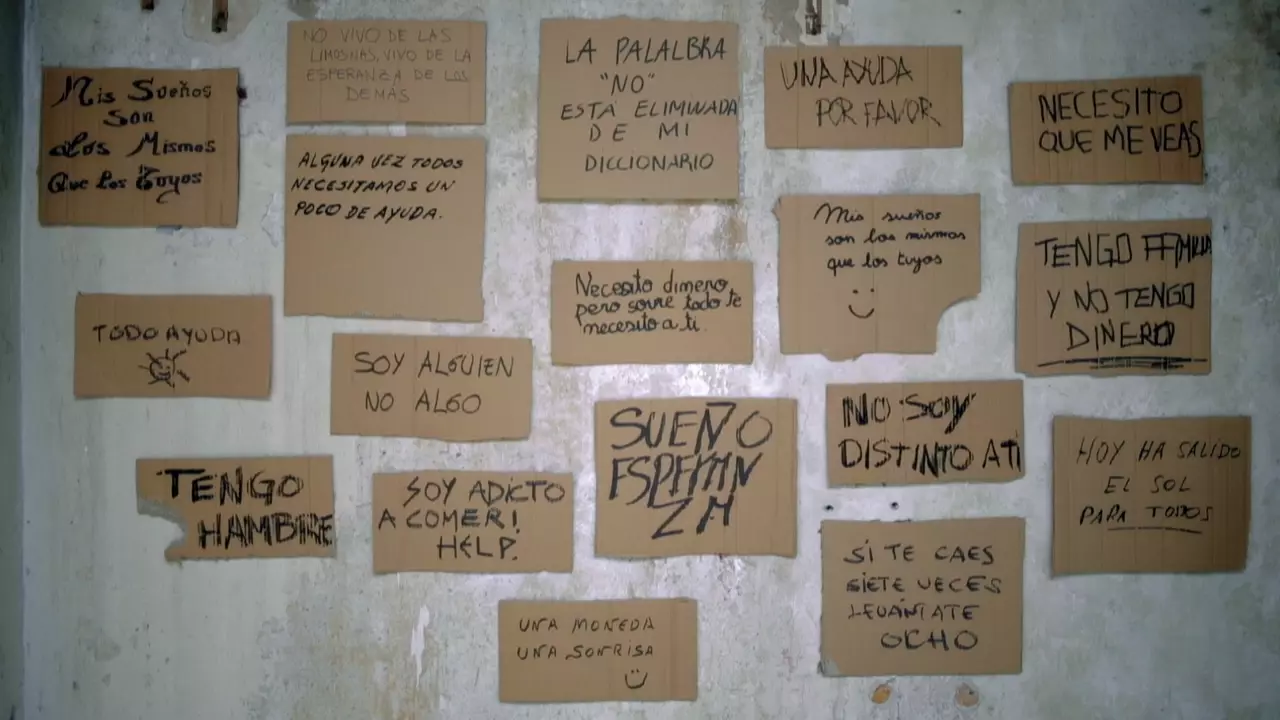 Mis Sueños
Son
Los Mismos
Que los Tuyos
NO VIVO DE LAS
LIMOSNAS, VIVO DE LA
ESPERANZA DE LOS
DEMÁS
ALGUNA VEZ TODOS
NECESITAMOS UN
POCO DE AYUDA.
LA PALALBRA
"NO"
ESTÁ ELIMINADA
DE MI
DICCIONARIO
UNA AYUDA
POR FAVOR
NECESITO
QUE ME VEAS
Mis sueños
son los mismos
que los tuyos
TENGO FAMILIA
Y NO TENGO
DINERO
Necesito dinero,
pero sovre todo te
necesito a ti.
TODO AYUDA
SOY ALGUIEN
NO ALGO
SUEÑO
ESPERAN
ZA
NO SOY
DISTINTO A TI
HOY HA SALIDO
EL SOL
PARA TODOS
TENGO
HAMBRE
SOY ADICTO
A COMER!
HELP.
SI TE CAES
SIETE VECES
LEVÁNTATE
OCHO
UNA MONEDA
UNA SONRISA